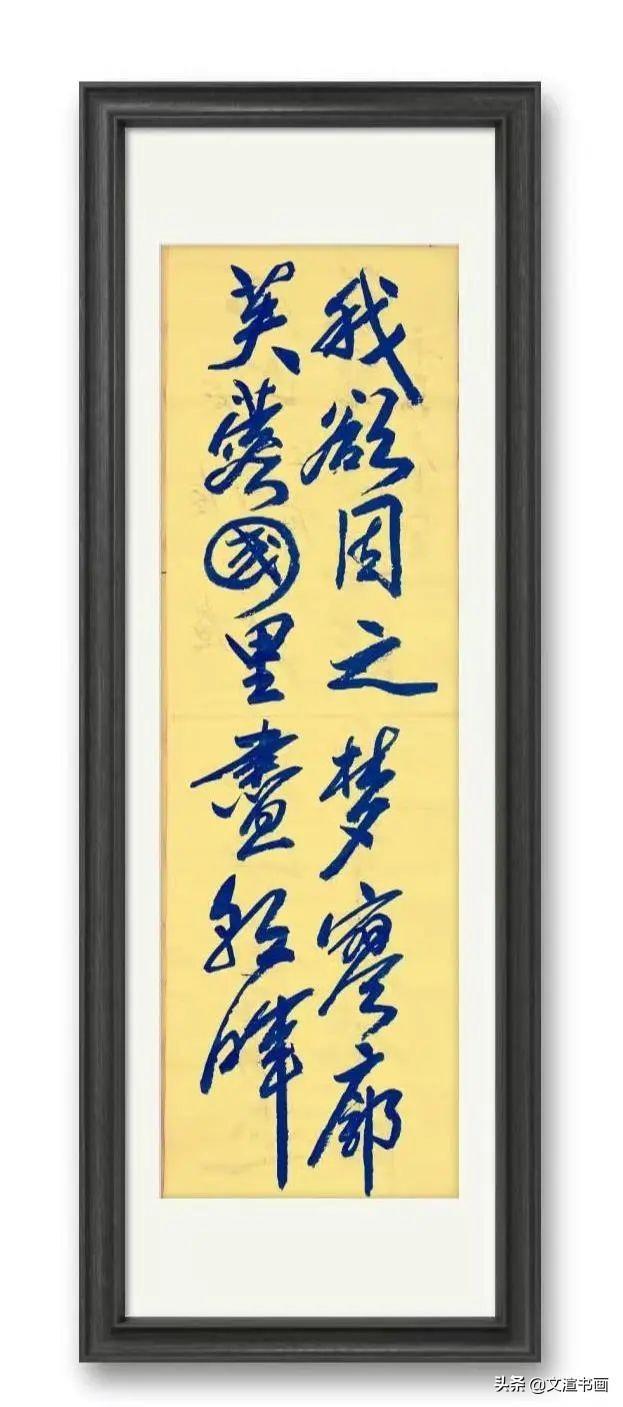 我欲因之梦寥廓
芙蓉國里盡朝晖
头条 @文渲书画